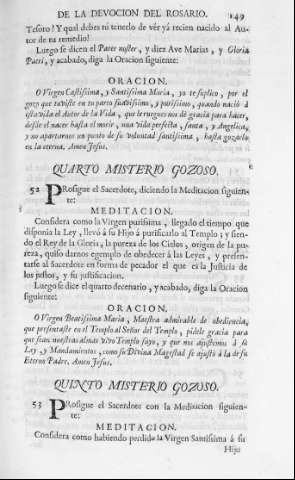 DE LA DEVOCION DEL ROSARIO. 149
Tesoro! Y qual debes ni tenerlo de vèr yà recien nacido al Au-
tor de tu remedio!
Luego se dicen el Pater noster, y diez Ave Marias, y Gloria
Patri, y acabado, diga la Oracion siguiente:
ORACION.
O Virgen Castissima, y Santissima Maria, yo te suplico, por el
gozo que tuviste en tu parto suavissimo, y purissimo, quando naciò à
esta vida el Autor de la Vida, que le ruegues nos dè gracia para hacer,
desde el nacer hasta el morir, una vida perfecta, santa, y Angelica,
y no apartarnos un punto de su voluntad santissima, hasta gozarlo
en la eterna. Amen Jesus.
QUARTO MISTERIO GOZOSO.
52 PRosigue el Sacerdote, diciendo la Meditacion siguien-
te:
MEDITACION.
Considera como la Virgen purissima, llegado el tiempo que
disponia la Ley, llevò à su Hijo à purificarlo al Templo; y sien-
do el Rey de la Gloria, la pureza de los Cielos, origen de la pu-
reza, quiso darnos egemplo de obedecer à las Leyes, y presen-
tarse al Sacerdote en forma de pecador el que es la Justicia de
los justos, y su justificacion.
Luego se dice el quarto decenario, y acabado, diga la Oracion
siguiente:
ORACION.
O Virgen Beatissima Maria, Maestra admirable de obediencia,
que presentaste en el Templo al Señor del Templo, pidele gracia para
que sean nuestras almas vivo Templo suyo, y que nos ajustemos à su
Ley, y Mandamientos, como su Divina Magestad se ajustò à la de su
Eterno Padre. Amen Jesus.
QUINTO MISTERIO GOZOSO.
53 PRosigue el Sacerdote con la Meditacion siguien-
te:
MEDITACION.
Considera como habiendo perdido la Virgen Santissima à su
Hijo